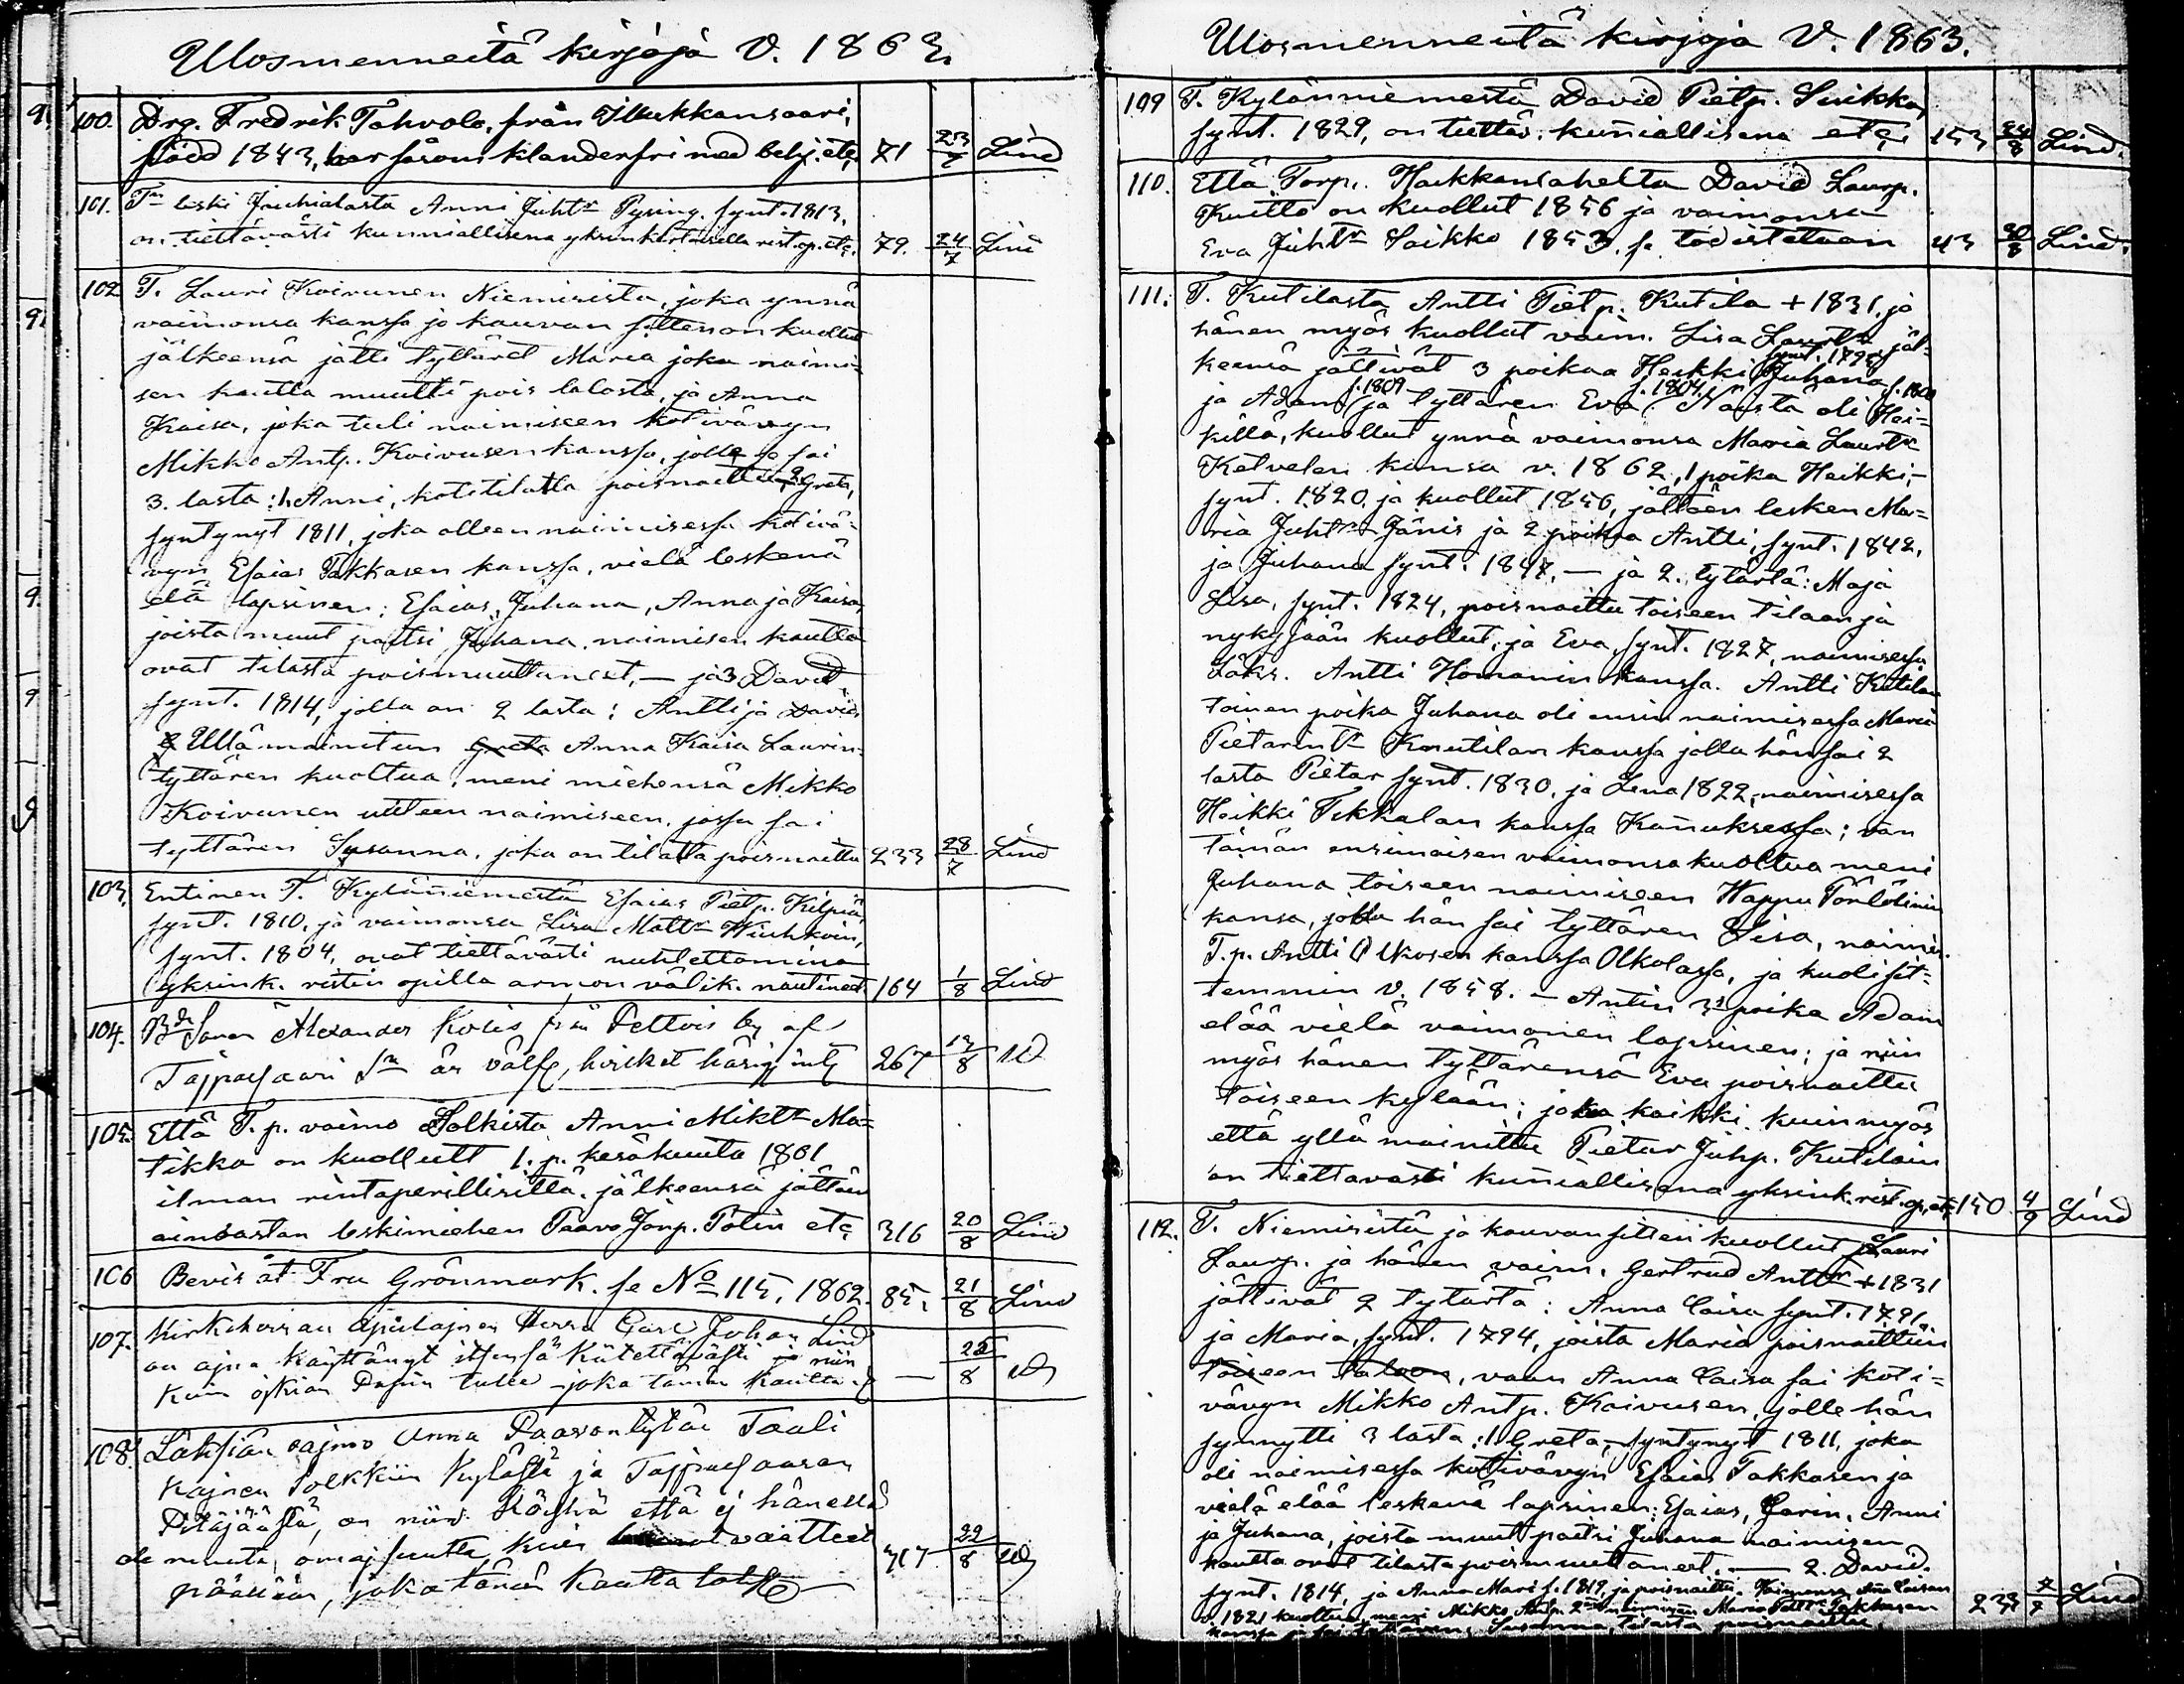 Ulosmenneitä kirjoja V. 1863.
100. Drg. Fredrik Tahvola, från Ilkukkansaari,
född 1843, har såsom klanderfri med behj. etc. 71 23/7 Lind
101. Tn leski Juhialasta Anni Juhtr Pysing. synt. 1813,
on tiettävästi kunniallisena yksinkertaisella rist. op. etc. 79. 24/7 Lind
102 T. Lauri Koivunen Niemisistä, joka ynnä
vaimonsa kanssa jo kauvan sitten on kuollut
jälkeensä jätti tyttäret Maria joka naimi-
sen kautta muutti pois talosta, ja Anna
Kaisa, joka tuli naimiseen kotivävyn
Mikko Antp. Koivusen kanssa, jolle se sai
3. lasta: 1. Anni, kotitilalta poisnaettu, 2 Greta,
syntynyt 1811, joka olleen naimisessa kotivä-
vyn Esaias Takkasen kanssa, vielä leskenä
elä lapsinen: Esaias, Juhana, Anna ja Kaisa,
joista muut paitsi Juhana, naimisen kautta
ovat tilasta poismuuttaneet, — ja 3 David
synt. 1814, jolla on 2 lasta: Antti ja David
Ylläˈmainitun Greta Anna Kaisa Laurin-
tyttären kuoltua, meni miehensä Mikko
Koivunen uuteen naimiseen, jossa sai
tyttären Susanna, joka on tilalta poisnaettu 233 28/7 Lind
103. Entinen T. Kyläniemestä Esaias Pietp. Kilpiä,
synt. 1810, ja vaimonsa Lisa Mattr Wiuhkoin,
synt. 1804, ovat tiettävästi nuhtettomina
yksink. ristin opilla armon välik. nautineet. 164 1/8 Lind
104. Alexander från by af
Taipalsaari Sn är 267 13/8
105. Että T.p. vaimo Solkista Anni Miktr Ma-
tikka on kuollutt 1. p. kesäkuuta 1861
ilman rintaperillisittä, jälkeensä jättäin
ainoastan leskimiehen Paavo Jönp. Potin etc 316 20/8 Lind
106 Bevis åt Fru Grönmark. se No 115, 1862. 85. 21/8 Lind
107. Kirkkoherran apulainen Herra Carl Johan Lind
on aina käyttänyt itsensä kiitettävästi ja niin
kuin oikian Papin tulee joka tämän kautta — 8
108. Läksiän vaimo Anna Paavontytär Taali
kainen Solkkiin kylästä ja Taipalsaaren
Pitäjäästä, on niin köyhä että ej hänellä
ole muuta omaisuutta, kuin vaatteet
päällän, joka tämän kautta 317 22/8
Ulosmenneitä kirjoja V. 1863.
109 T. Kylänniemestä David Pietp. Sinikka,
synt. 1829, on tiettäv. kuniallisena etc. 153 24/8 Lind.
110. Että Torp. Haikkansahelta David Laurp.
Kuitto on kuollut 1856 ja vaimonsa
Eva Juhtr Saikko 1853. se todistetaan 43 8 Lind.
111. T. Kutilasta Antti Pietp. Kutila + 1831, ja
hänen myös kuollut vaim. Lisa Laurtr jäl-
keensä jättivät 3 poikaa Heikki synt. 1795, Juhana s. 1800
ja Adam s. 1809 ja tyttären Eva s. 1804. Näistä oli Hei-
killä, kuollut ynnä vaimonsa Maria Laurtr
Ketvelen kansa v. 1862, 1 poika Heikki,
synt. 1820, ja kuollut 1856, jättäen lesken Ma-
ria Juhtr Jänis ja 2 poikaa Antti, synt. 1842,
ja Juhana synt. 1847, — ja 2. tytärtä: Maja
Lisa, synt. 1824, poisnaittu toiseen tilaan ja
nykyjään kuollut, ja Eva, synt. 1827, naimisessa
Läks. Antti Homanin kanssa. Antti Kutilan
toinen poika Juhana oli ensin naimisessa Maria
Pietarin Tr Knutilan kanssa jolla hän sai 2
lasta Pietar synt. 1830, ja Lena 1822, naimisessa
Heikki Tekkalan kanssa Kanuksessa; van
tämän ensimäisen vaimonsa kuoltua meni
Juhana toiseen naimiseen Wappu Pöntölinin
kansa, jolla hän sai tyttären Lisa, naimis.
T.p. Antti Olkosen kanssa Olkolassa, ja kuoli sit-
temmin v. 1858. — Antin 3s poika Adam
elää vielä vaimonen lapsinen; ja niin
myös hänen tyttärensä Eva poisnaettu
toiseen kylään; joka kaikki, kuin myös
että yllä mainittu Pietar Juhp. Kutilain
on tiettavasti kuniallisena yksink. rist. op. etc. 150 4/9 Lind
112. T. Niemisistä jo kauvan sitten kuollut Lauri
Laurp. ja hänen vaim. Gertrud Anttr + 1831
jättivät 2 tytärtä: Anna Caisa synt. 1791,
ja Maria, synt. 1794, joista Maria poisnaittiin
toiseen taloon, vaan Anna Caisa sai koti-
vävyn Mikko Antp. Koivusen, jolle hän
synnytti 3 lasta: 1. Greta, syntynyt 1811, joka
oli naimisessa kotivävyn Esaias Takkasen ja
vielä elää leskenä lapsinen: Esaias, Carin, Anni
ja Juhana, joista muut paitsi Juhana naimisen
kautta ovat tilasta poismuuttaneet. — 2. David.
synt. 1814, ja Anna Mari s. 1819, ja poisnaittu. Vaimonsa Ana Caisan
v. 1821 kuoltua, meni Mikko Antp. 2 naimisen Maria Takkasen
kanssa ja sai tyttären Susanna, tilasta poisnaittu. 233 7 Lind